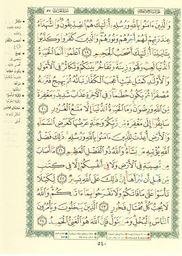 وَالَّذِينَ ءَامَنُوا بِاللَّهِ وَرُسُلِهِ أُولَٰئِكَ هُمُ الصِّدِّيقُونَ وَالشُّهَدَاءُ
عِندَ رَبِّهِمْ لَهُمْ أَجْرُهُمْ وَنُورُهُمْ وَالَّذِينَ كَفَرُوا وَكَذَّبُوا
بِـَٔايَٰتِنَا أُولَٰئِكَ أَصْحَٰبُ الْجَحِيمِ ١٩ اعْلَمُوا أَنَّمَا الْحَيَوٰةُ
الدُّنْيَا لَعِبٌ وَلَهْوٌ وَزِينَةٌ وَتَفَاخُرٌ بَيْنَكُمْ وَتَكَاثُرٌ فِي الْأَمْوَٰلِ
وَالْأَوْلَٰدِ كَمَثَلِ غَيْثٍ أَعْجَبَ الْكُفَّارَ نَبَاتُهُ ثُمَّ يَهِيجُ فَتَرَىٰهُ
مُصْفَرًّا ثُمَّ يَكُونُ حُطَٰمًا وَفِي الْءَاخِرَةِ عَذَابٌ شَدِيدٌ وَمَغْفِرَةٌ
مِّنَ اللَّهِ وَرِضْوَٰنٌ وَمَا الْحَيَوٰةُ الدُّنْيَا إِلَّا مَتَٰعُ الْغُرُورِ ٢٠
سَابِقُوا إِلَىٰ مَغْفِرَةٍ مِّن رَّبِّكُمْ وَجَنَّةٍ عَرْضُهَا كَعَرْضِ السَّمَاءِ
وَالْأَرْضِ أُعِدَّتْ لِلَّذِينَ ءَامَنُوا بِاللَّهِ وَرُسُلِهِ ذَٰلِكَ فَضْلُ
اللَّهِ يُؤْتِيهِ مَن يَشَاءُ وَاللَّهُ ذُو الْفَضْلِ الْعَظِيمِ ٢١ مَا أَصَابَ
مِن مُّصِيبَةٍ فِي الْأَرْضِ وَلَا فِي أَنفُسِكُمْ إِلَّا فِي كِتَٰبٍ
مِّن قَبْلِ أَن نَّبْرَأَهَا إِنَّ ذَٰلِكَ عَلَى اللَّهِ يَسِيرٌ ٢٢ لِّكَيْلَا
تَأْسَوْا عَلَىٰ مَا فَاتَكُمْ وَلَا تَفْرَحُوا بِمَا ءَاتَىٰكُمْ وَاللَّهُ
لَا يُحِبُّ كُلَّ مُخْتَالٍ فَخُورٍ ٢٣ الَّذِينَ يَبْخَلُونَ وَيَأْمُرُونَ
النَّاسَ بِالْبُخْلِ وَمَن يَتَوَلَّ فَإِنَّ اللَّهَ هُوَ الْغَنِيُّ الْحَمِيدُ ٢٤
٥٤٠